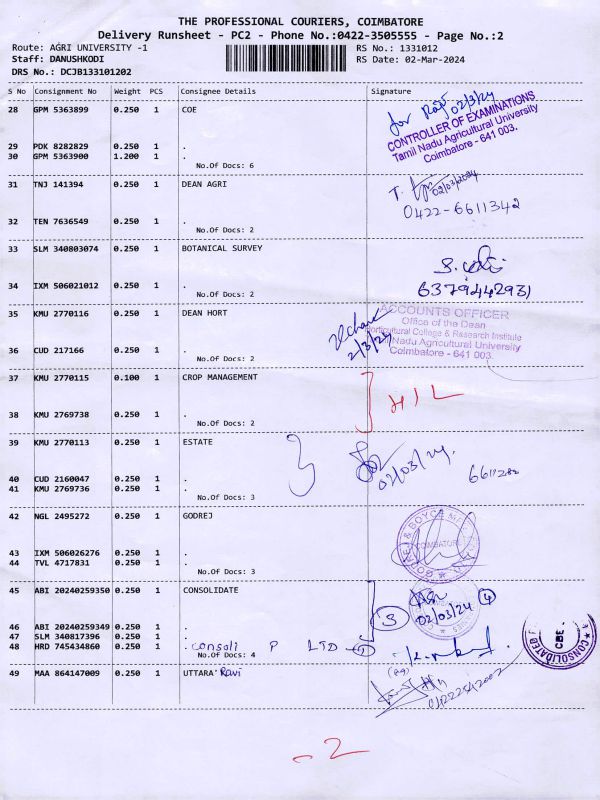 THE PROFESSIONAL COURIERS, COIMBATORE
Delivery Runsheet - PC2 - Phone No.:0422-3505555 - Page No.:2
Route: AGRI UNIVERSITY -1 RS No.: 1331012
Staff: DANUSHKODI RS Date: 02-Mar-2024
DRS No.: DCJB133101202
S No Consignment No Weight PCS Consignee Details Signature
28 GPM 5363899 0.250 1 COE
for 02/3/24
CONTROLLER OF EXAMINATIONS
Tamil Nadu Agricultural University
Coimbatore - 641 003.
29 PDK 8282829 0.250 1 .
30 GPM 5363900 1.200 1 .
No.Of Docs: 6
31 TNJ 141394 0.250 1 DEAN AGRI
02/03/2024
0422-6611342
32 TEN 7636549 0.250 1 .
No.Of Docs: 2
33 SLM 340803074 0.250 1 BOTANICAL SURVEY
34 IXM 506021012 0.250 1 .
6379442931
No.Of Docs: 2
35 KMU 2770116 0.250 1 DEAN HORT
2/3/24
ACCOUNTS OFFICER
Office of the Dean
Horticultural College & Research Institute
Nadu Agricultural University
Coimbatore - 641 003.
36 CUD 217166 0.250 1 .
No.Of Docs: 2
37 KMU 2770115 0.100 1 CROP MANAGEMENT
HIL
38 KMU 2769738 0.250 1 .
No.Of Docs: 2
39 KMU 2770113 0.250 1 ESTATE
02/03/24.
40 CUD 2160047 0.250 1 .
41 KMU 2769736 0.250 1 .
No.Of Docs: 3
42 NGL 2495272 0.250 1 GODREJ
GODREJ & BOYCE
COIMBATORE
43 IXM 506026276 0.250 1 .
44 TVL 4717831 0.250 1 .
No.Of Docs: 3
45 ABI 20240259350 0.250 1 CONSOLIDATE
3 02/03/24 4
46 ABI 20240259349 0.250 1 .
47 SLM 340817396 0.250 1 .
48 HRD 745434860 0.250 1 . Consoli P LTD
No.Of Docs: 4
CONSOLIDATED
CBE
49 MAA 864147009 0.250 1 UTTARA Ravi
- 2